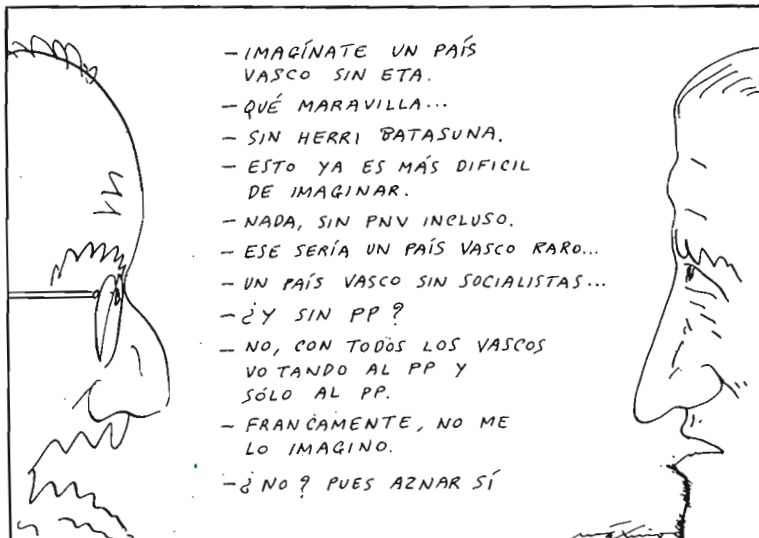 - IMAGÍNATE UN PAÍS
VASCO SIN ETA.
- QUÉ MARAVILLA...
- SIN HERRI BATASUNA.
- ESTO YA ES MÁS DIFICIL
DE IMAGINAR.
- NADA, SIN PNV INCLUSO.
- ESE SERÍA UN PAÍS VASCO RARO...
- UN PAÍS VASCO SIN SOCIALISTAS...
- ¿Y SIN PP?
- NO, CON TODOS LOS VASCOS
VOTANDO AL PP Y
SÓLO AL PP.
- FRANCAMENTE, NO ME
LO IMAGINO.
- ¿NO? PUES AZNAR SÍ
máximo